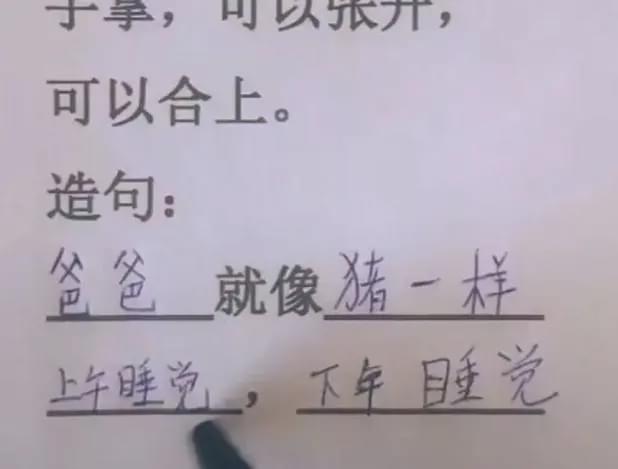 手掌，可以张开，
可以合上。
造句：
爸爸就像猪一样
上午睡觉，下午睡觉